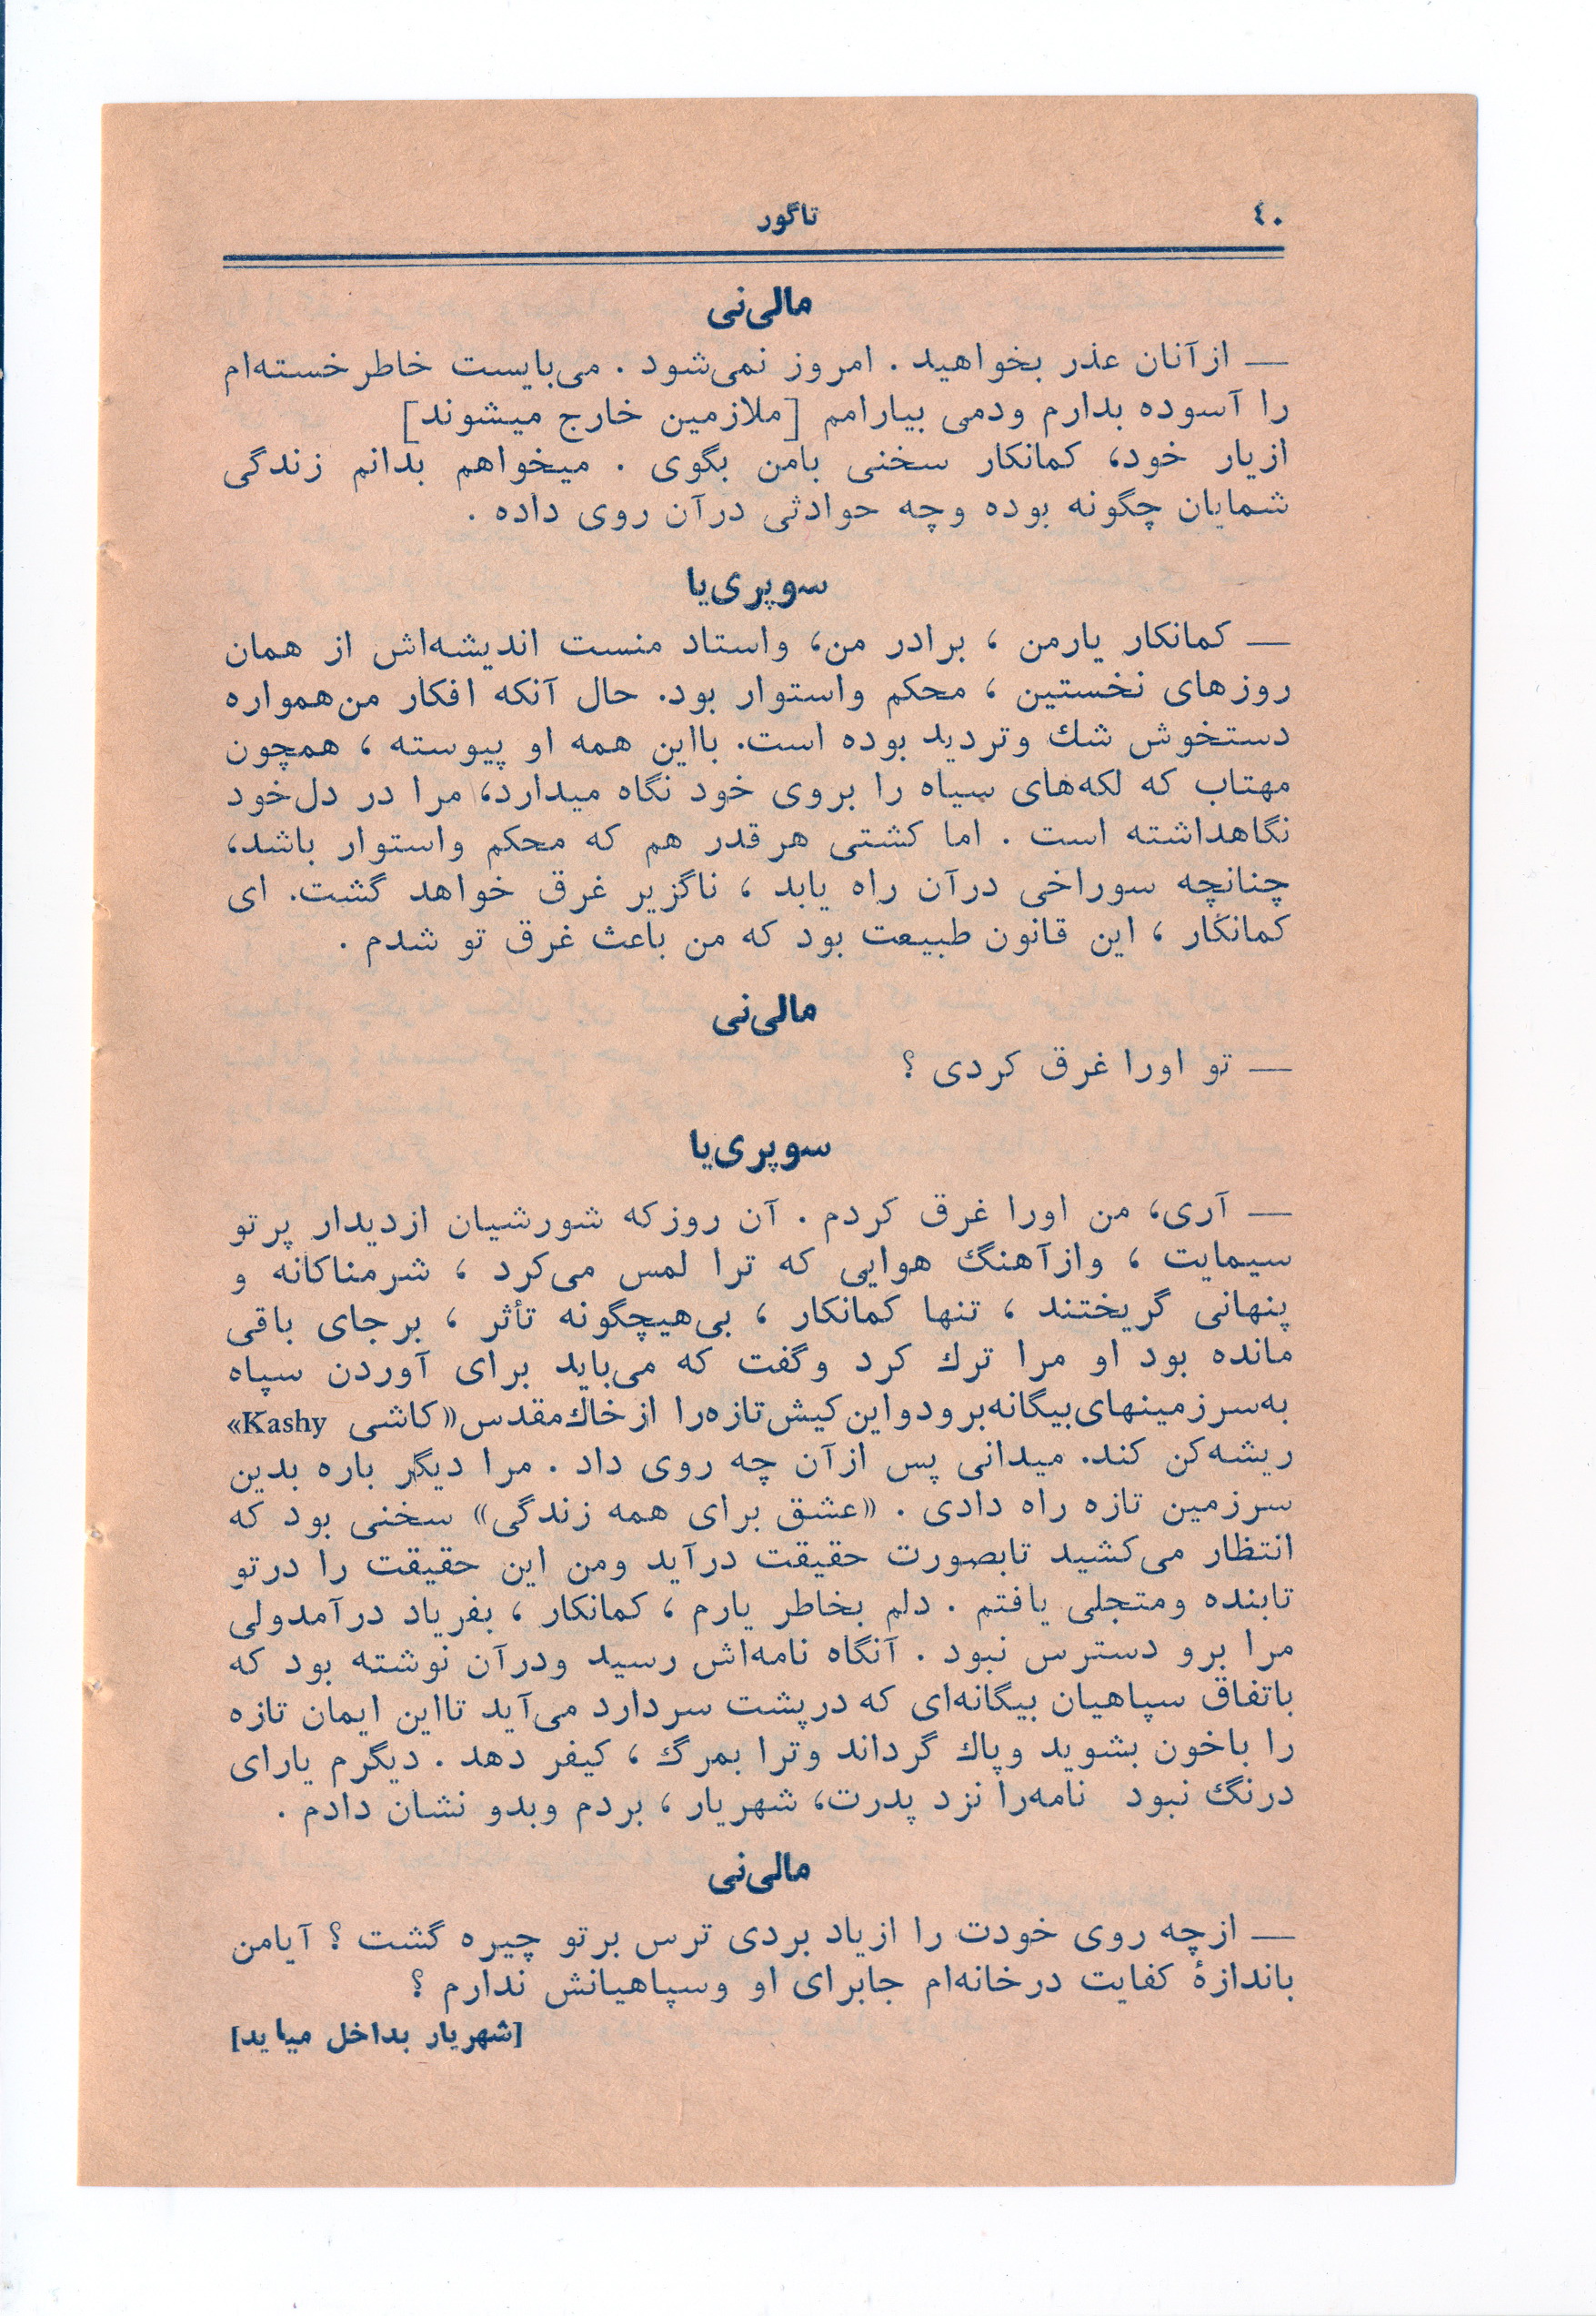 ۴۰
تاگور
مالی‌نی
— ازآنان عذر بخواهید . امروز نمی‌شود . می‌بایست خاطر خسته‌ام
را آسوده بدارم ودمی بیارامم [ملازمین خارج میشوند]
ازیار خود، کمانکار سخنی بامن بگوی . میخواهم بدانم زندگی
شمایان چگونه بوده وچه حوادثی درآن روی داده .
سوپری‌یا
— کمانکار یارمن ، برادر من، واستاد منست اندیشه‌اش از همان
روزهای نخستین ، محکم واستوار بود. حال آنکه افکار من‌همواره
دستخوش شك وتردید بوده است. بااین همه او پیوسته ، همچون
مهتاب که لکه‌های سیاه را بروی خود نگاه میدارد، مرا در دل‌خود
نگاهداشته است . اما کشتی هرقدر هم که محکم واستوار باشد،
چنانچه سوراخی درآن راه یابد ، ناگزیر غرق خواهد گشت. ای
کمانکار ، این قانون طبیعت بود که من باعث غرق تو شدم .
مالی‌نی
— تو اورا غرق کردی ؟
سوپری‌یا
— آری، من اورا غرق کردم . آن روزکه شورشیان ازدیدار پرتو
سیمایت ، وازآهنگ هوایی که ترا لمس می‌کرد ، شرمناکانه و
پنهانی گریختند ، تنها کمانکار ، بی‌هیچگونه تأثر ، برجای باقی
مانده بود او مرا ترك کرد وگفت که می‌باید برای آوردن سپاه
به‌سرزمینهای‌بیگانه‌برودواین‌کیش‌تازه‌را ازخاك‌مقدس«کاشی Kashy»
ریشه‌کن کند. میدانی پس ازآن چه روی داد . مرا دیگر باره بدین
سرزمین تازه راه دادی . «عشق برای همه زندگی» سخنی بود که
انتظار می‌کشید تابصورت حقیقت درآید ومن این حقیقت را درتو
تابنده ومتجلی یافتم . دلم بخاطر یارم ، کمانکار ، بفریاد درآمدولی
مرا برو دسترس نبود . آنگاه نامه‌اش رسید ودرآن نوشته بود که
باتفاق سپاهیان بیگانه‌ای که درپشت سردارد می‌آید تااین ایمان تازه
را باخون بشوید وپاك گرداند وترا بمرگ ، کیفر دهد . دیگرم یارای
درنگ نبود نامه‌را نزد پدرت، شهریار ، بردم وبدو نشان دادم .
مالی‌نی
— ازچه روی خودت را ازیاد بردی ترس برتو چیره گشت ؟ آیامن
باندازهٔ کفایت درخانه‌ام جابرای او وسپاهیانش ندارم ؟
[شهریار بداخل میاید]